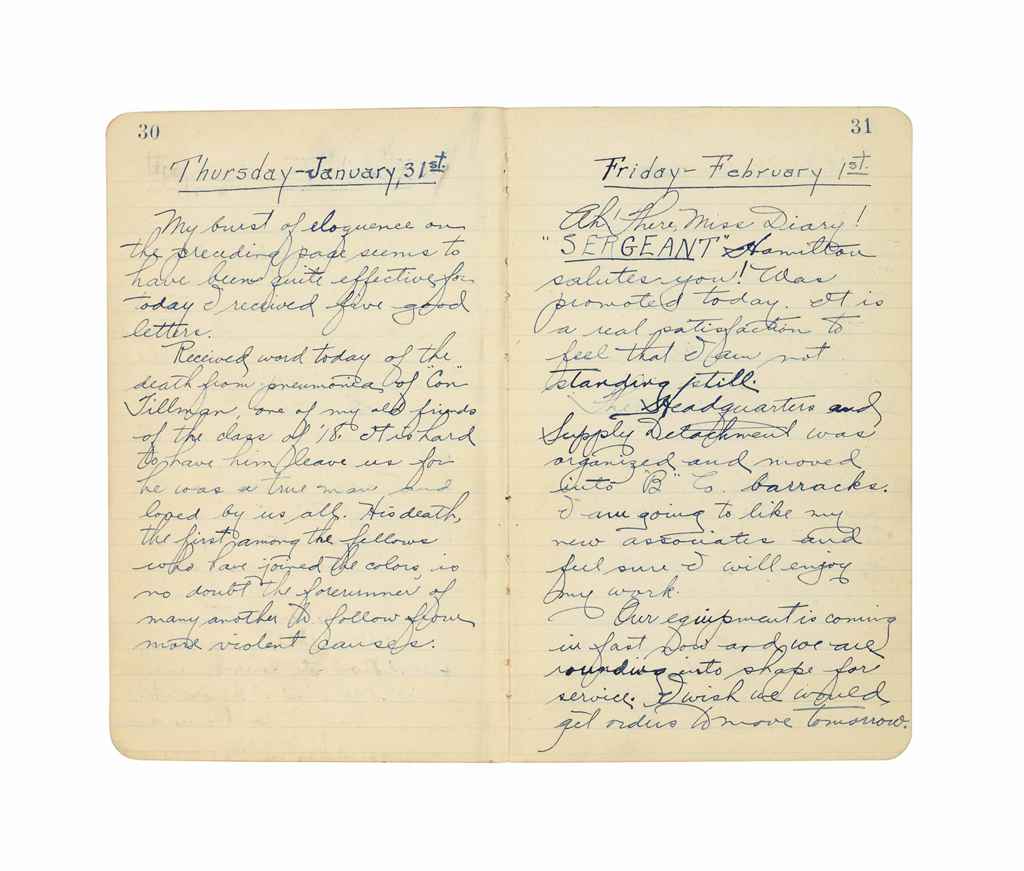 30
Thursday-January, 31st.
My burst of eloquence on
the preceding page seems to
have been quite effective, for
today I received five good
letters.
Received word today of the
death from pneumonia, of "Con"
Tillman, one of my old friends
of the class of '18. It is hard
to have him leave us for
he was a true man and
loved by us all. His death,
the first among the fellows
who have joined the colors, is
no doubt the forerunner of
many another to follow from
more violent causes.
31
Friday-February 1st.
Ah! There, Miss Diary!
"SERGEANT" Hamilton
salutes you! Was
promoted today. It is
a real satisfaction to
feel that I am not
standing still.
The Headquarters and
Supply Detachment was
organized and moved
into "B" Co. barracks.
I am going to like my
new associates and
feel sure I will enjoy
my work.
Our equipment is coming
in fast now and we are
rounding into shape for
service. I wish we would
get orders to move tomorrow.